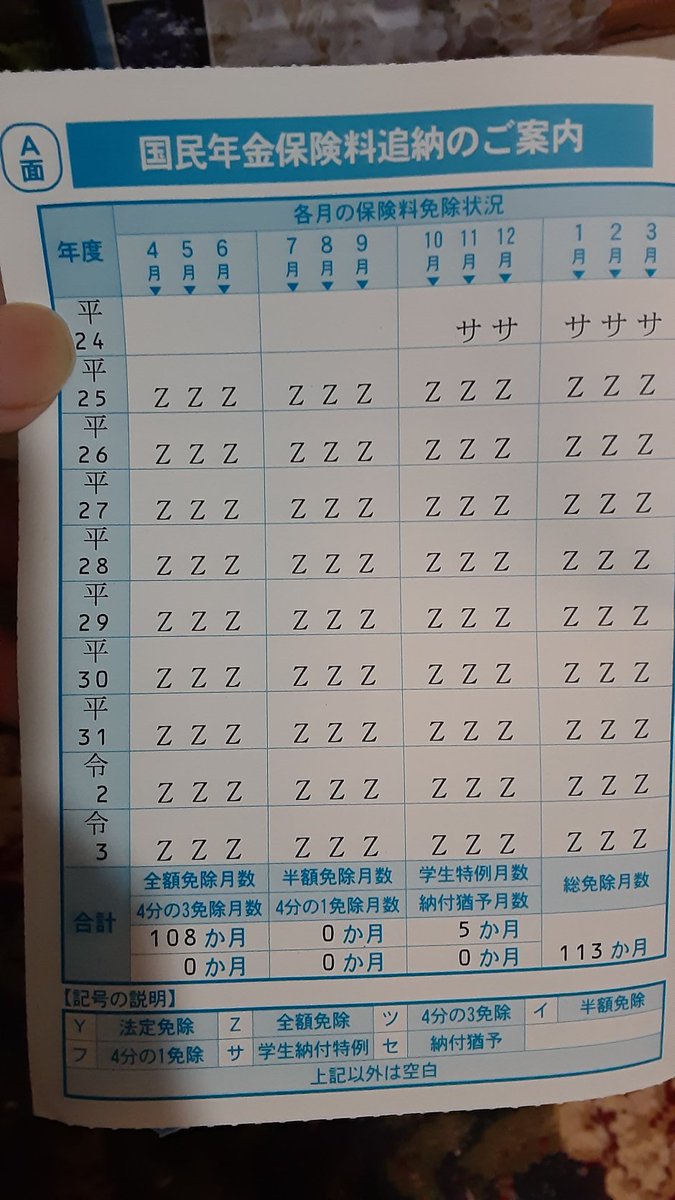 A面
国民年金保険料追納のご案内
年度 各月の保険料免除状況
4月 5月 6月 7月 8月 9月 10月 11月 12月 1月 2月 3月
平24 サ サ サ サ サ
平25 Z Z Z Z Z Z Z Z Z Z Z Z
平26 Z Z Z Z Z Z Z Z Z Z Z Z
平27 Z Z Z Z Z Z Z Z Z Z Z Z
平28 Z Z Z Z Z Z Z Z Z Z Z Z
平29 Z Z Z Z Z Z Z Z Z Z Z Z
平30 Z Z Z Z Z Z Z Z Z Z Z Z
平31 Z Z Z Z Z Z Z Z Z Z Z Z
令2 Z Z Z Z Z Z Z Z Z Z Z Z
令3 Z Z Z Z Z Z Z Z Z Z Z Z
合計
全額免除月数 半額免除月数 学生特例月数 総免除月数
4分の3免除月数 4分の1免除月数 納付猶予月数
108か月 0か月 5か月 113か月
0か月 0か月 0か月
【記号の説明】
Y 法定免除 Z 全額免除 ツ 4分の3免除 イ 半額免除
フ 4分の1免除 サ 学生納付特例 セ 納付猶予
上記以外は空白